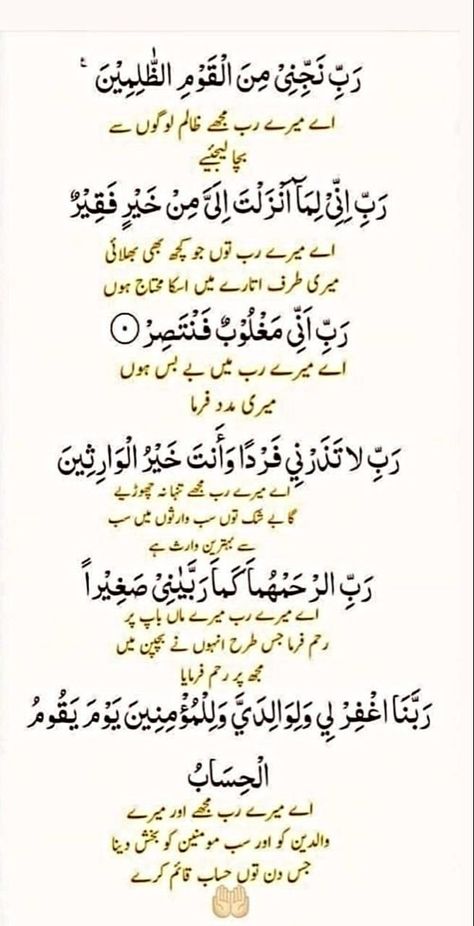 رَبِّ نَجِّنِیْ مِنَ الْقَوْمِ الظّٰلِمِیْنَ ۠
اے میرے رب مجھے ظالم لوگوں سے
بچا لیجئیے
رَبِّ اِنِّیْ لِمَاۤ اَنْزَلْتَ اِلَیَّ مِنْ خَیْرٍ فَقِیْرٌ
اے میرے رب توں جو کچھ بھی بھلائی
میری طرف اتارے میں اسکا محتاج ہوں
رَبِّ اَنِّی مَغْلُوْبٌ فَنْتَصِرْ ۝
اے میرے رب میں بے بس ہوں
میری مدد فرما
رَبِّ لا تَذَرْنِي فَرْدًا وَأَنتَ خَيْرُ الْوَارِثِينَ
اے میرے رب مجھے تنہا نہ چھوڑیے
گا بے شک توں سب وارثوں میں سب
سے بہترین وارث ہے
رَبِّ الرْحَمْهُمَا كَمَا رَبَّيٰنِىْ صَغِيْراً
اے میرے رب میرے ماں باپ پر
رحم فرما جس طرح انہوں نے بچپن میں
مجھ پر رحم فرمایا
رَبَّنَا اغْفِرْ لِي وَلِوَالِدَيَّ وَلِلْمُؤْمِنِينَ يَوْمَ يَقُومُ
الْحِسَابُ
اے میرے رب مجھے اور میرے
والدین کو اور سب مومنین کو بخش دینا
جس دن توں حساب قائم کرے